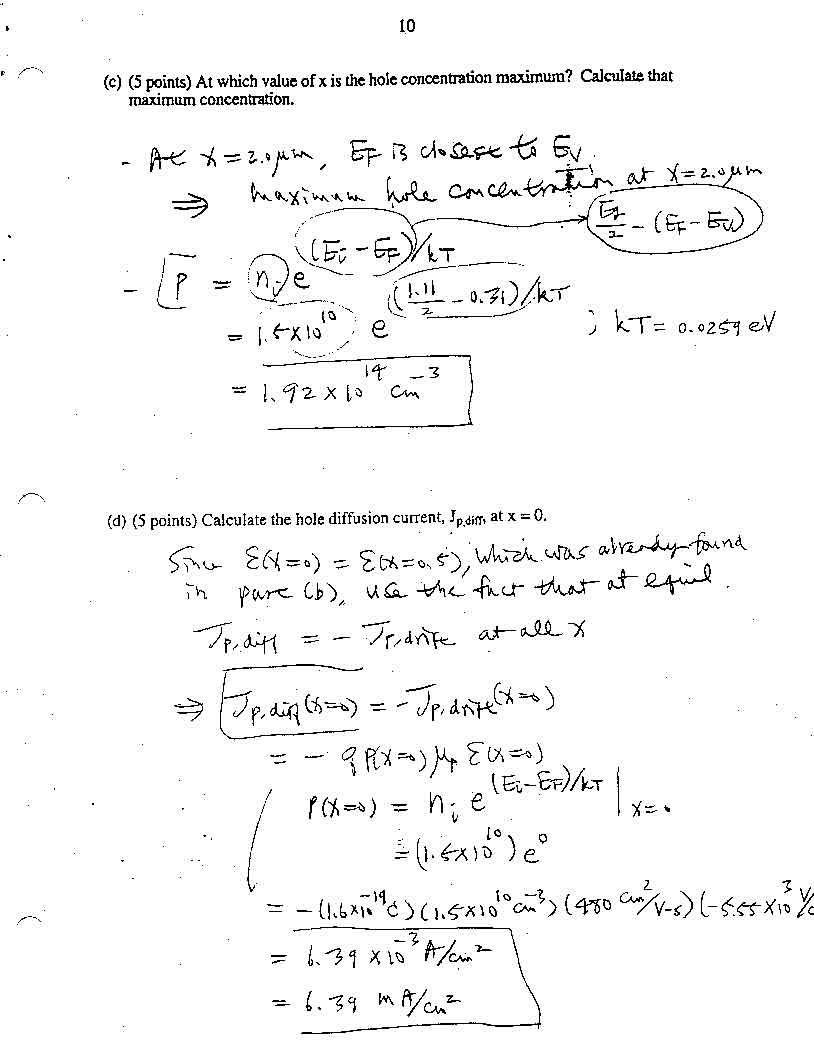 10
(c) (5 points) At which value of x is the hole concentration maximum? Calculate that
maximum concentration.
- At x = 2.0 μm, EF is closest to EV.
⇒ maximum hole concentration at x = 2.0 μm
- p = ni e^(Ei - EF)/kT → Eg/2 - (EF - EV)
= 1.5×10^10 e^(1.11/2 - 0.31)/kT ; kT = 0.0259 eV
= 1.92 × 10^14 cm^-3
(d) (5 points) Calculate the hole diffusion current, Jp,diff, at x = 0.
Since Ɛ(x=0) = Ɛ(x=0.5), which was already found
in part (b), use the fact that at equil.
Jp,diff = - Jp,drift at all x
⇒ Jp,diff(x=0) = - Jp,drift(x=0)
= - q p(x=0) μp Ɛ(x=0)
p(x=0) = ni e^(Ei-EF)/kT | x=0
= (1.5×10^10) e^0
= -(1.6×10^-19 C)(1.5×10^10 cm^-3)(480 cm^2/V-s)(-5.55×10^3 V/c
= 6.39 × 10^-3 A/cm^2
= 6.39 mA/cm^2